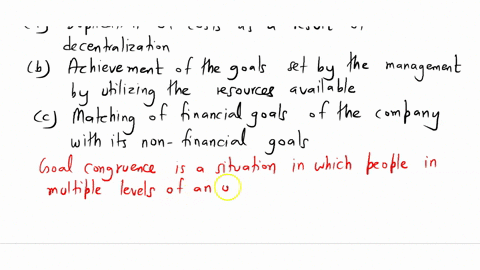 decentralization
(b) Achievement of the goals set by the management
by utilizing the resources available
(c) Matching of financial goals of the company
with its non-financial goals
Goal congruence is a situation in which people in
multiple levels of an